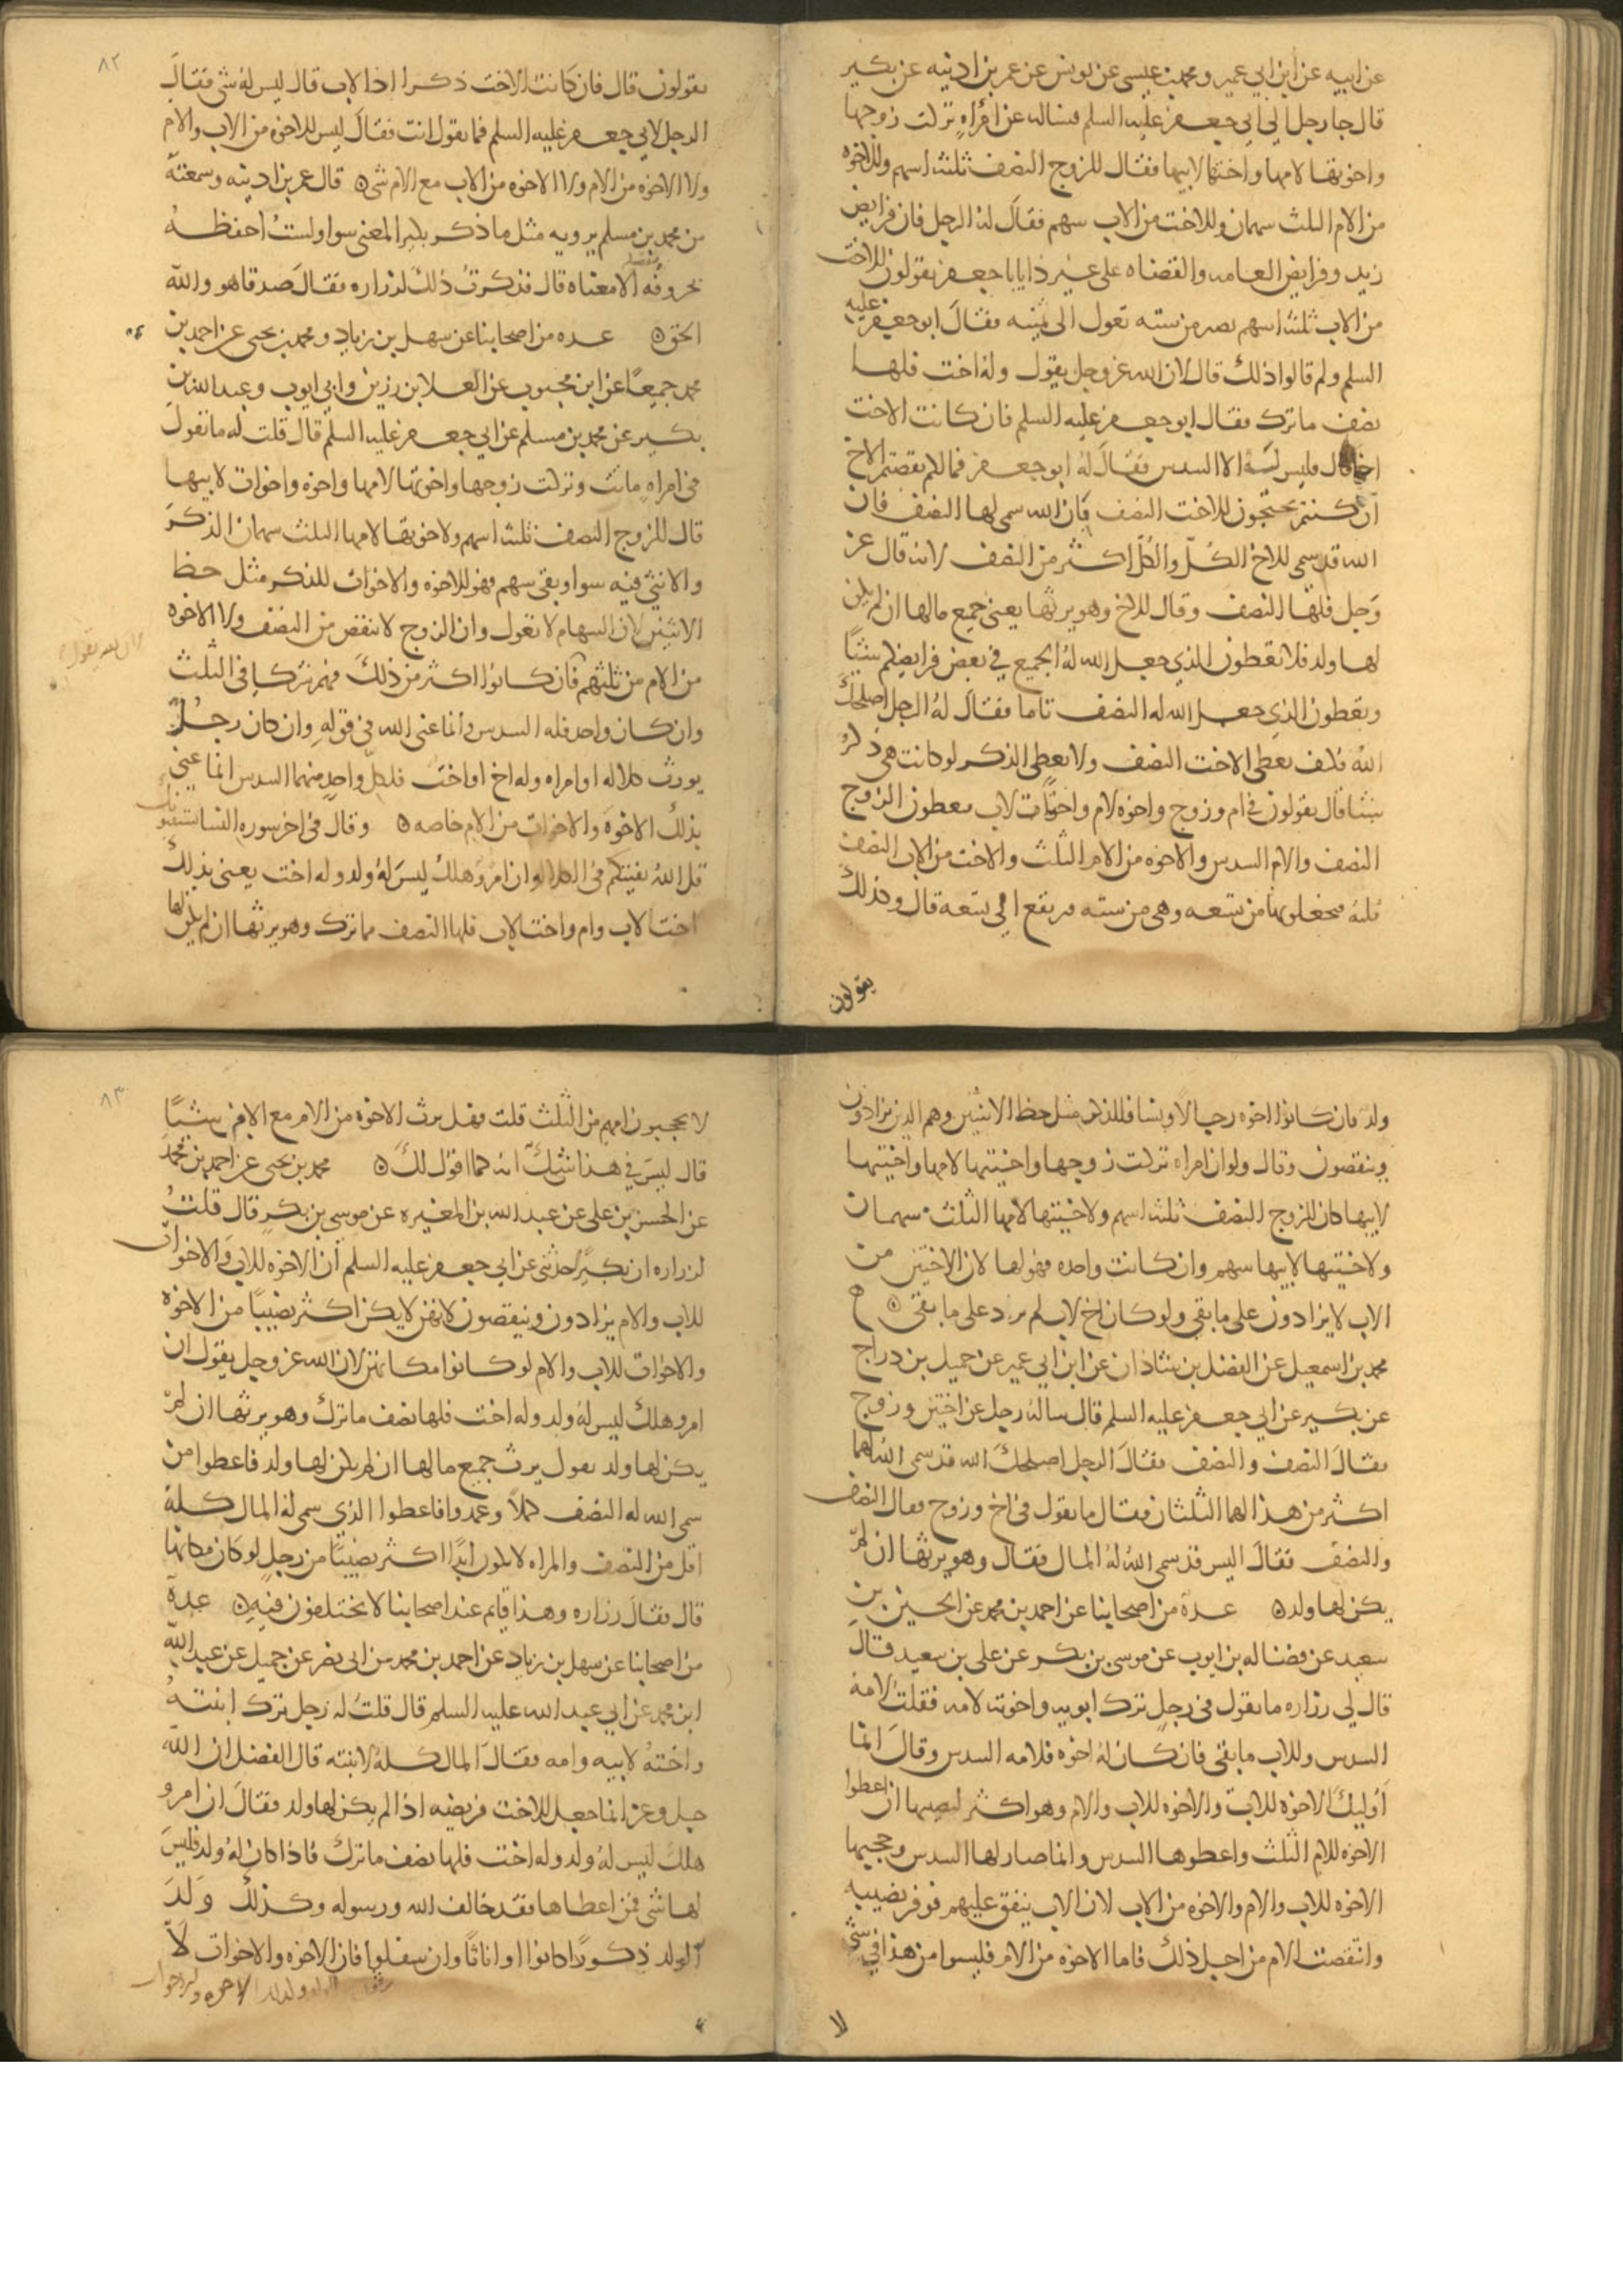 عن ابيه عن ابن ابي عمير ومحمد بن عيسى عن يونس عن عمر بن اذينه عن بكير
قال جا رجل الي ابي جعفر عليه السلم فساله عن امراه تركت زوجها
واخوتها لامها واختها لابيها فقال للزوج النصف ثلثه اسهم وللاخوه
من الام الثلث سهمان وللاخت من الاب سهم فقال له الرجل فان فرايض
زيد وفرايض العامه والقضاه على غير ذا يابا جعفر يقولون للاخت
من الاب ثلثه اسهم تصير من سته تعول الى ثمنيه فقال ابو جعفر عليه
السلم ولم قالوا ذلك قال لان الله عز وجل يقول وله اخت فلها
نصف ما ترك فقال ابو جعفر عليه السلم فان كانت الاخت
اخا قال فليس له الا السدس فقال له ابو جعفر فما لكم نقصتم الاخ
ان كنتم تحتجون للاخت النصف بان الله سمى لها النصف فان
الله قد سمى للاخ الكل والكل اكثر من النصف لانه قال عز
وجل فلها النصف وقال للاخ وهو يرثها يعنى جميع مالها ان لم يكن
لها ولد فلا تعطون الذي جعل الله له الجميع في بعض فرايضكم شيئا
وتعطون الذي جعل الله له النصف تاما فقال له الرجل اصلحك
الله فكيف نعطي الاخت النصف ولا نعطى الذكر لو كانت هي ذكر
شيئا قال يقولون في ام وزوج واخوه لام واخت لاب فيعطون الزوج
النصف والام السدس والاخوه من الام الثلث والاخت من الاب النصف
ثلثه فيجعلونها من تسعه وهى من سته فيرتفع الى تسعه قال وكذلك
يقولون
٨٢
يقولون قال فان كانت الاخت ذكرا اخا لاب قال ليس له شى فقال
الرجل لابي جعفر عليه السلم فما تقول انت فقال ليس للاخوه من الاب والام
ولا الاخوه من الام ولا الاخوه من الاب مع الام شى ه قال عمر بن اذينه وسمعته
من محمد بن مسلم يرويه مثل ما ذكر بكير المعنى سوا ولست احفظه
بحروفه الا معناه قال فذكرت ذلك لزراره فقال صدقا هو والله
الحق ه عده من اصحابنا عن سهل بن زياد ومحمد بن يحيى عن احمد بن
محمد جميعا عن ابن محبوب عن العلا بن رزين وابي ايوب وعبد الله بن
بكير عن محمد بن مسلم عن ابي جعفر عليه السلم قال قلت له ما تقول
في امراه ماتت وتركت زوجها واخوتها لامها واخوه واخوات لابيها
قال للزوج النصف ثلثه اسهم ولاخوتها لامها الثلث سهمان الذكر
والانثى فيه سوا وبقى سهم فهو للاخوه والاخوات للذكر مثل حظ
الانثيين لان السهام لا تعول وان الزوج لا ينقص من النصف ولا الاخوه
من الام من ثلثهم فان كانوا اكثر من ذلك فهم شركا فى الثلث
وان كان واحد فله السدس وانما عنى الله في قوله وان كان رجل
يورث كلاله او امراه وله اخ او اخت فلكل واحد منهما السدس انما عنى
بذلك الاخوه والاخوات من الام خاصه ه وقال في اخر سوره النسا يستفتونك
قل الله يفتيكم في الكلاله ان امرؤ هلك ليس له ولد وله اخت يعنى بذلك
اختا لاب وام واختا لاب فلها النصف مما ترك وهو يرثها ان لم يكن لها
ولد فان كانوا اخوه رجالا ونسا فللذكر مثل حظ الانثيين وهم الذين يزادون
وينقصون وقال ولو ان امراه تركت زوجها واختيها لامها واختيها
لابيها كان للزوج النصف ثلثه اسهم ولاختيها لامها الثلث سهمان
ولاختيها لابيها سهم وان كانت واحده فهو لها لان الاختين من
الاب لا يزادون على ما بقي ولو كان اخ لاب لم يزد على ما بقى ه
محمد بن اسمعيل عن الفضل بن شاذان عن ابن ابي عمير عن جميل بن دراج
عن بكير عن ابي جعفر عليه السلم قال ساله رجل عن اختين وزوج
فقال النصف والنصف فقال الرجل اصلحك الله قد سمى الله لهما
اكثر من هذا لهما الثلثان فقال ما تقول في اخ وزوج فقال النصف
والنصف فقال اليس قد سمى الله له المال فقال وهو يرثها ان لم
يكن لها ولد ه عدة من اصحابنا عن احمد بن محمد عن الحسين بن
سعيد عن فضاله بن ايوب عن موسى بن بكر عن علي بن سعيد قال
قال لي زراره ما تقول في رجل ترك ابويه واخوته لامه فقلت لامه
السدس وللاب ما بقى فان كان له اخوه فلامه السدس وقال انما
اوليك الاخوه للاب والاخوه للاب والام وهو اكثر لنصيبها ان اعطوا
الاخوه للام الثلث واعطوها السدس وانما صار لها السدس وحجبها
الاخوه للاب والام والاخوه من الاب لان الاب ينفق عليهم فوفر نصيبه
وانتقصت الام من اجل ذلك فاما الاخوه من الام فليسوا من هذا في شى
لا
٨٣
لا يحجبون امهم من الثلث قلت فهل يرث الاخوه من الام مع الام شيئا
قال ليس في هذا شك انه كما اقول لك ه محمد بن يحيى عن احمد بن محمد
عن الحسن بن على عن عبد الله بن المغيره عن موسى بن بكر قال قلت
لزراره ان بكيرا حدثنى عن ابي جعفر عليه السلم ان الاخوه للاب والاخوات
للاب والام يزادون وينقصون لانهن لا يكن اكثر نصيبا من الاخوه
والاخوات للاب والام لو كانوا مكانهن لان الله عز وجل يقول ان
امرو هلك ليس له ولد وله اخت فلها نصف ما ترك وهو يرثها ان لم
يكن لها ولد يقول يرث جميع مالها ان لم يكن لها ولد فاعطوا من
سمى الله له النصف كملا وعمدوا فاعطوا الذي سمى له المال كله
اقل من النصف والمراه لا تكون ابدا اكثر نصيبا من رجل لو كان مكانها
قال فقال زراره وهذا قايم عند اصحابنا لا يختلفون فيه ه عدة
من اصحابنا عن سهل بن زياد عن احمد بن محمد بن ابى نصر عن جميل عن عبد الله
ابن محمد عن ابي عبد الله عليه السلم قال قلت له رجل ترك ابنته
واخته لابيه وامه فقال المال كله لابنته قال الفضل ان الله
جل وعز انما جعل للاخت فريضه اذا لم يكن لها ولد فقال ان امرو
هلك ليس له ولد وله اخت فلها نصف ما ترك فاذا كان له ولد فليس
لها شى فمن اعطاها فقد خالف الله ورسوله وكذلك ولد
الولد ذكورا كانوا او اناثا وان سفلوا فان الاخوه والاخوات لا